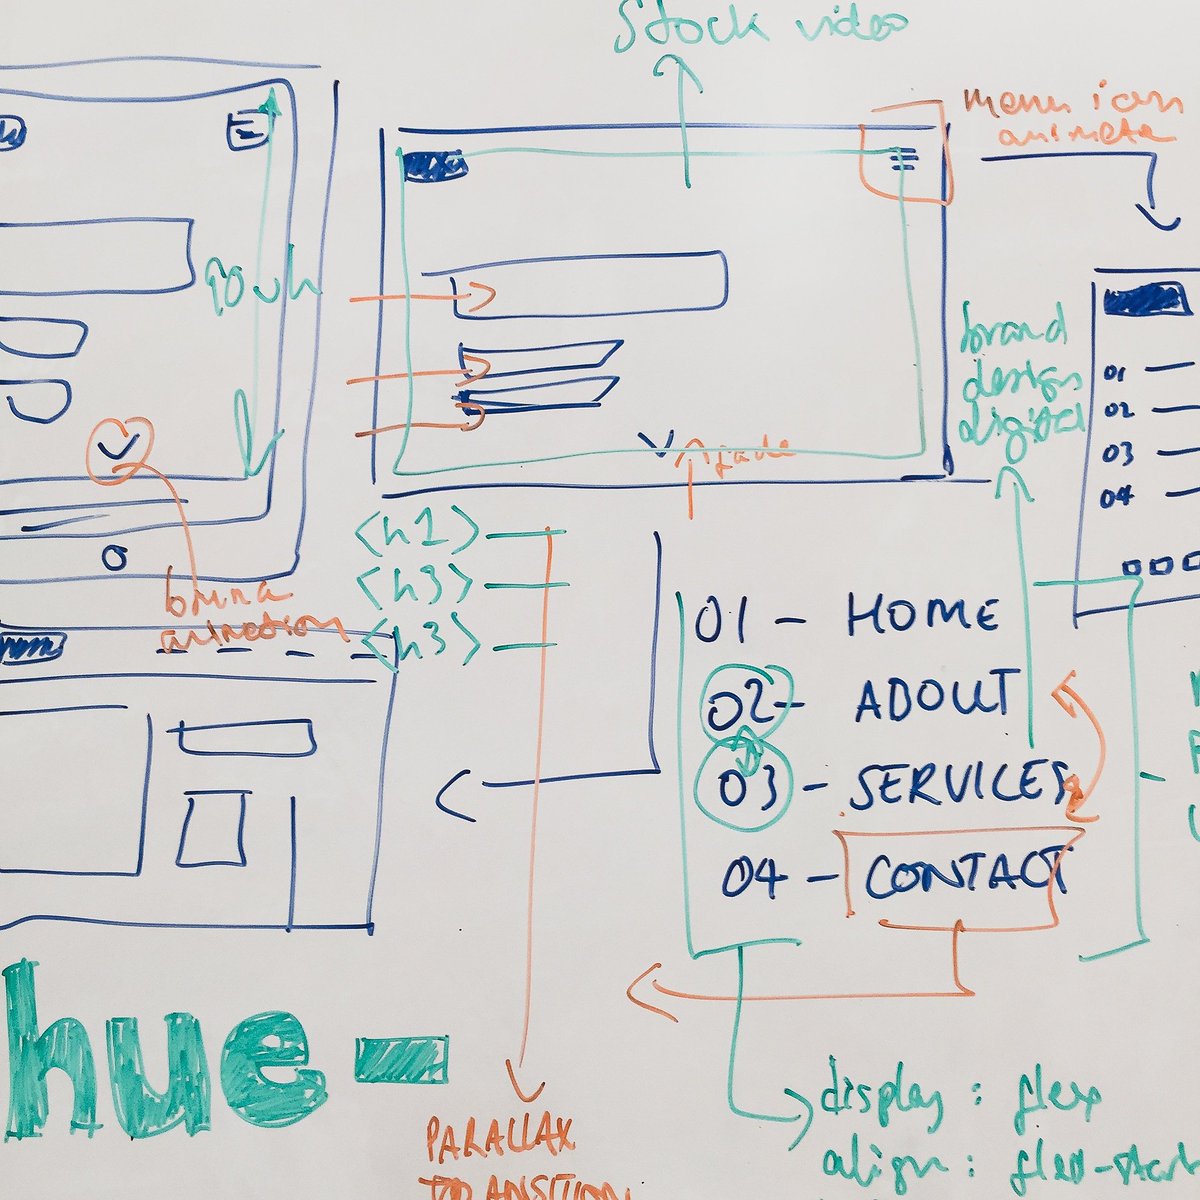 Stock video
menu icon
animate
90vh
brand
design
digital
01
02
03
04
fade
<h1>
<h3>
<h3>
bounce
animation
01 - HOME
02 - ABOUT
03 - SERVICES
04 - CONTACT
hue
display : flex
align : flex-start
PARALLAX
TRANSITION